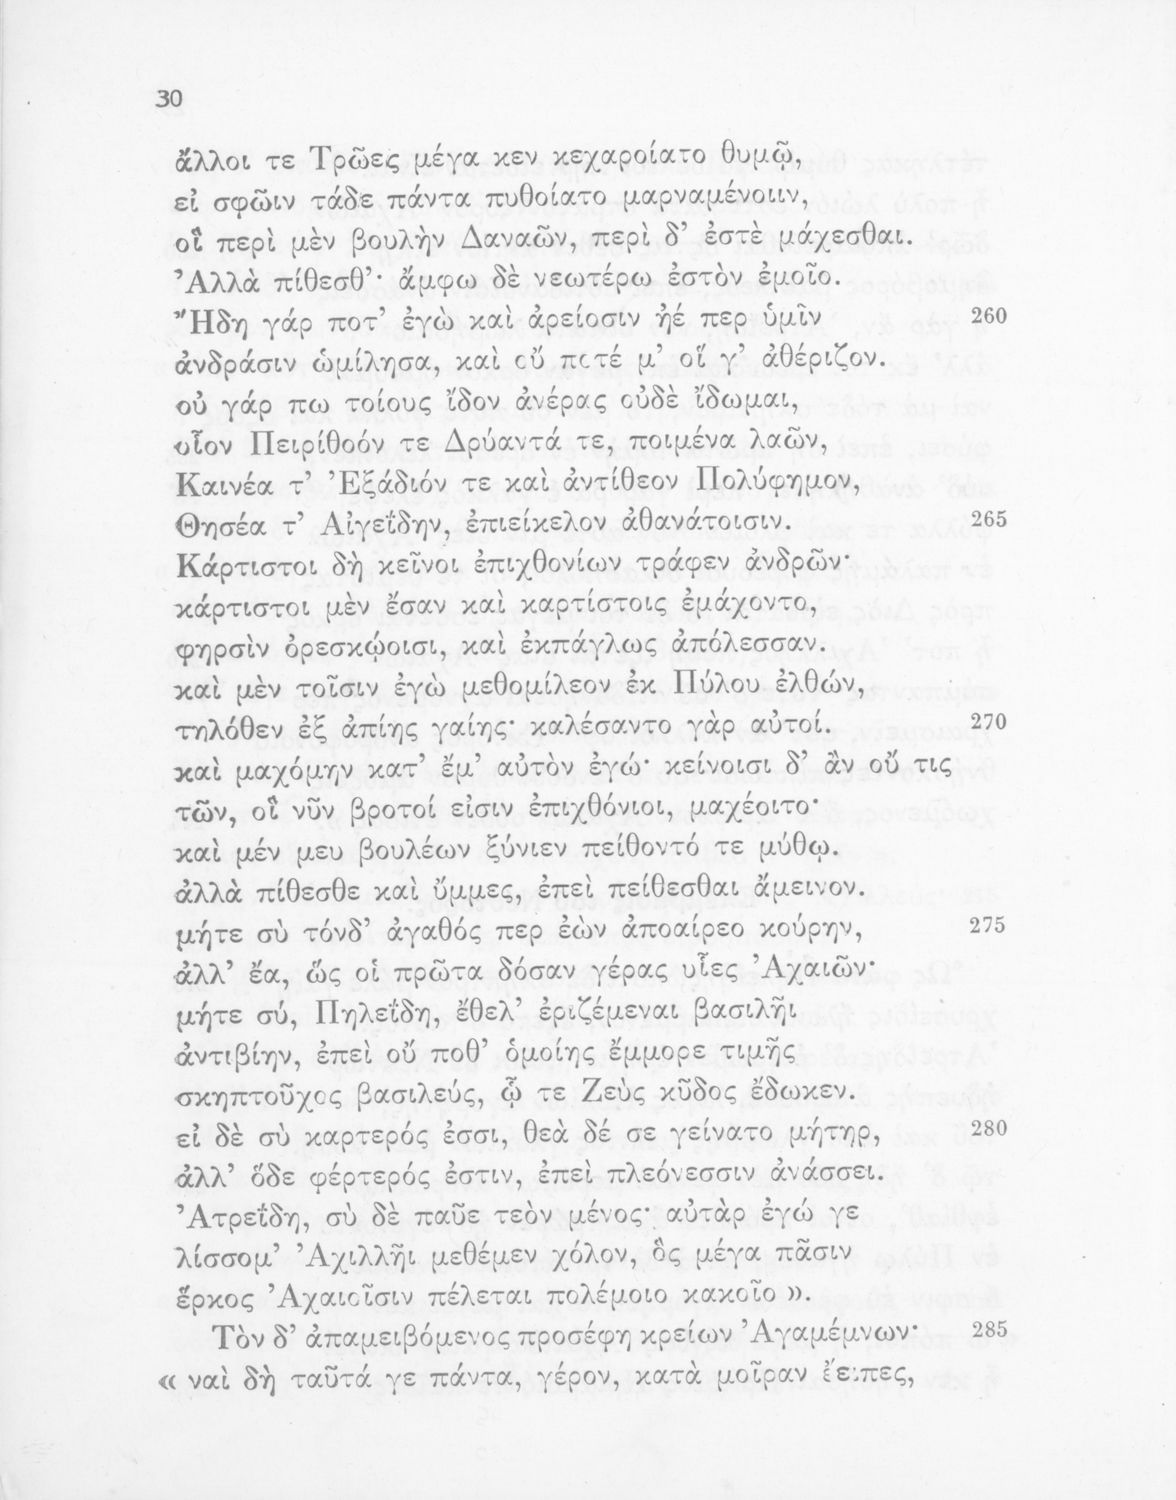 30
ἄλλοι τε Τρῶες μέγα κεν κεχαροίατο θυμῷ,
εἰ σφῶιν τάδε πάντα πυθοίατο μαρναμένοιιν,
οἳ περὶ μὲν βουλὴν Δαναῶν, περὶ δ’ ἐστὲ μάχεσθαι.
Ἀλλὰ πίθεσθ’· ἄμφω δὲ νεωτέρω ἐστὸν ἐμοῖο.
Ἤδη γάρ ποτ’ ἐγὼ καὶ ἀρείοσιν ἠέ περ ὑμῖν 260
ἀνδράσιν ὡμίλησα, καὶ οὔ ποτέ μ’ οἵ γ’ ἀθέριζον.
οὐ γάρ πω τοίους ἴδον ἀνέρας οὐδὲ ἴδωμαι,
οἷον Πειρίθοόν τε Δρύαντά τε, ποιμένα λαῶν,
Καινέα τ’ Ἐξάδιόν τε καὶ ἀντίθεον Πολύφημον,
Θησέα τ’ Αἰγεΐδην, ἐπιείκελον ἀθανάτοισιν. 265
Κάρτιστοι δὴ κεῖνοι ἐπιχθονίων τράφεν ἀνδρῶν·
κάρτιστοι μὲν ἔσαν καὶ καρτίστοις ἐμάχοντο,
φηρσὶν ὀρεσκῴοισι, καὶ ἐκπάγλως ἀπόλεσσαν.
καὶ μὲν τοῖσιν ἐγὼ μεθομίλεον ἐκ Πύλου ἐλθών,
τηλόθεν ἐξ ἀπίης γαίης· καλέσαντο γὰρ αὐτοί. 270
καὶ μαχόμην κατ’ ἔμ’ αὐτὸν ἐγώ· κείνοισι δ’ ἂν οὔ τις
τῶν, οἳ νῦν βροτοί εἰσιν ἐπιχθόνιοι, μαχέοιτο·
καὶ μέν μευ βουλέων ξύνιεν πείθοντό τε μύθῳ.
ἀλλὰ πίθεσθε καὶ ὔμμες, ἐπεὶ πείθεσθαι ἄμεινον.
μήτε σὺ τόνδ’ ἀγαθός περ ἐὼν ἀποαίρεο κούρην, 275
ἀλλ’ ἔα, ὥς οἱ πρῶτα δόσαν γέρας υἷες Ἀχαιῶν·
μήτε σύ, Πηλεΐδη, ἔθελ’ ἐριζέμεναι βασιλῆι
ἀντιβίην, ἐπεὶ οὔ ποθ’ ὁμοίης ἔμμορε τιμῆς
σκηπτοῦχος βασιλεύς, ᾧ τε Ζεὺς κῦδος ἔδωκεν.
εἰ δὲ σὺ καρτερός ἐσσι, θεὰ δέ σε γείνατο μήτηρ, 280
ἀλλ’ ὅδε φέρτερός ἐστιν, ἐπεὶ πλεόνεσσιν ἀνάσσει.
Ἀτρεΐδη, σὺ δὲ παῦε τεὸν μένος· αὐτὰρ ἐγώ γε
λίσσομ’ Ἀχιλλῆι μεθέμεν χόλον, ὃς μέγα πᾶσιν
ἕρκος Ἀχαιοῖσιν πέλεται πολέμοιο κακοῖο ».
Τὸν δ’ ἀπαμειβόμενος προσέφη κρείων Ἀγαμέμνων· 285
« ναὶ δὴ ταῦτά γε πάντα, γέρον, κατὰ μοῖραν ἔειπες,